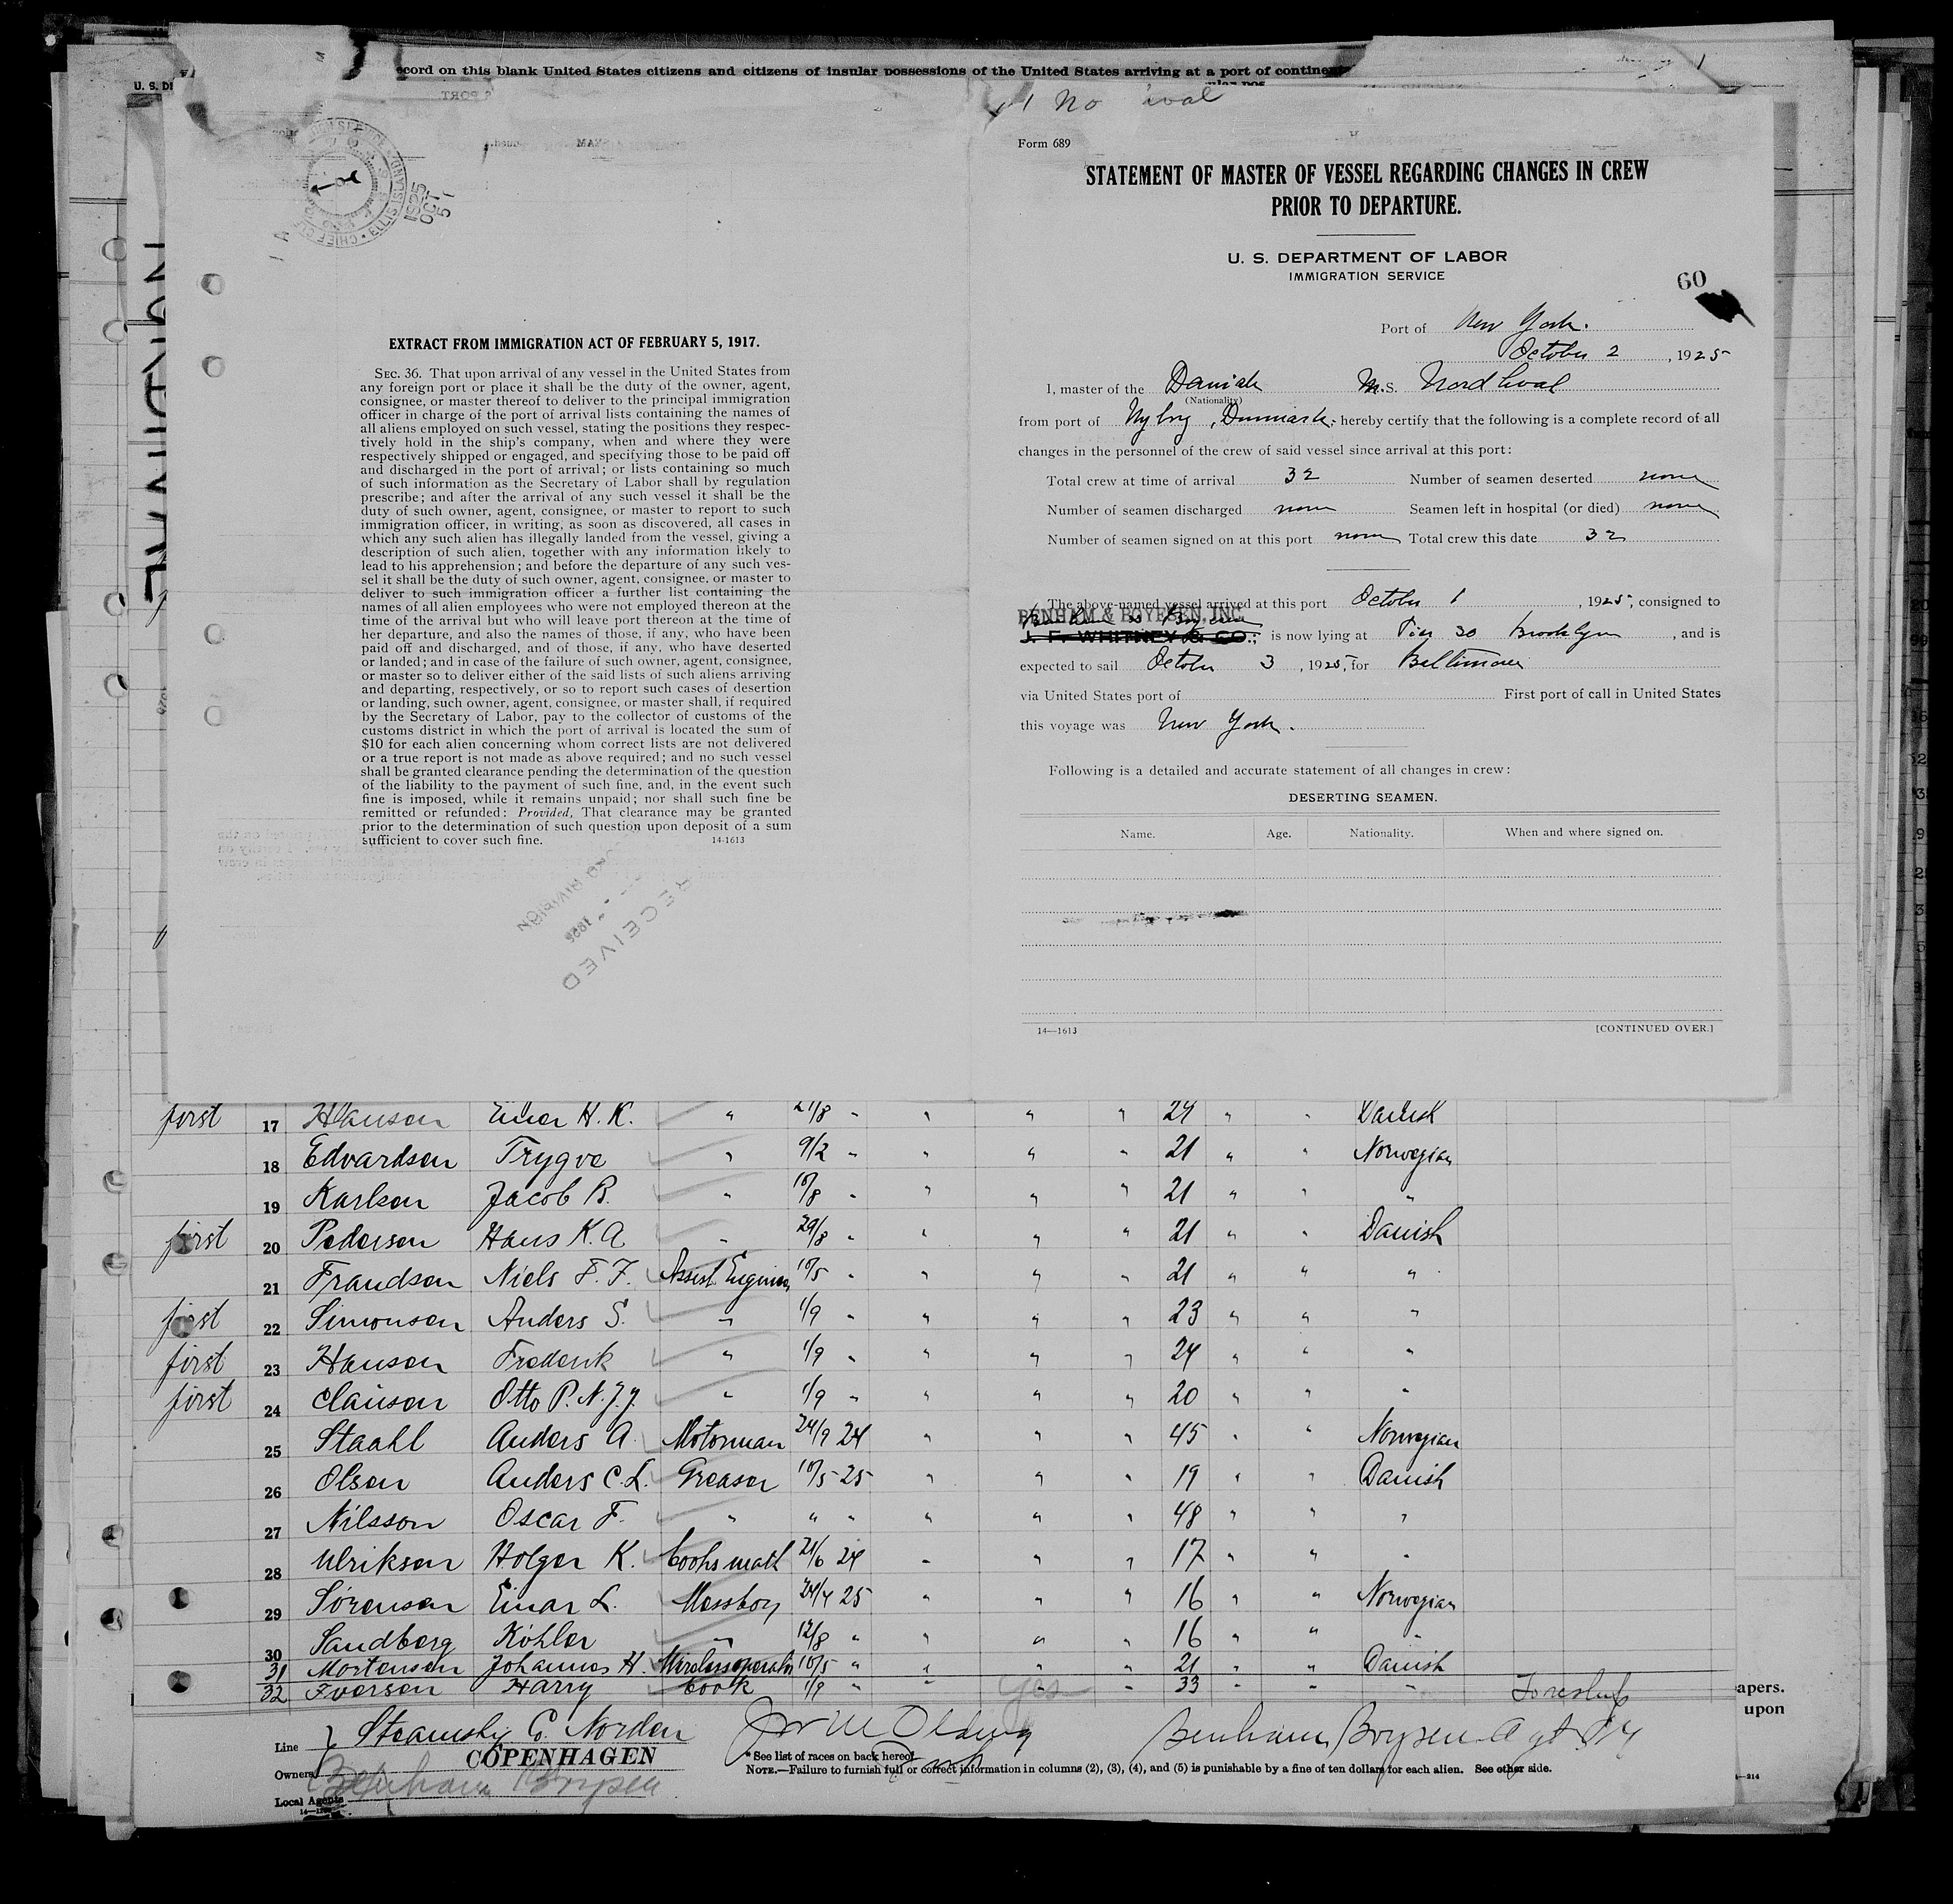 ecord on this blank United States citizens and citizens of insular possessions of the United States arriving at a port of contine
U. S. DE
1925
OCT
5
NORDHVAL
EXTRACT FROM IMMIGRATION ACT OF FEBRUARY 5, 1917.
SEC. 36. That upon arrival of any vessel in the United States from
any foreign port or place it shall be the duty of the owner, agent,
consignee, or master thereof to deliver to the principal immigration
officer in charge of the port of arrival lists containing the names of
all aliens employed on such vessel, stating the positions they respec-
tively hold in the ship's company, when and where they were
respectively shipped or engaged, and specifying those to be paid off
and discharged in the port of arrival; or lists containing so much
of such information as the Secretary of Labor shall by regulation
prescribe; and after the arrival of any such vessel it shall be the
duty of such owner, agent, consignee, or master to report to such
immigration officer, in writing, as soon as discovered, all cases in
which any such alien has illegally landed from the vessel, giving a
description of such alien, together with any information likely to
lead to his apprehension; and before the departure of any such ves-
sel it shall be the duty of such owner, agent, consignee, or master to
deliver to such immigration officer a further list containing the
names of all alien employees who were not employed thereon at the
time of the arrival but who will leave port thereon at the time of
her departure, and also the names of those, if any, who have been
paid off and discharged, and of those, if any, who have deserted
or landed; and in case of the failure of such owner, agent, consignee,
or master so to deliver either of the said lists of such aliens arriving
and departing, respectively, or so to report such cases of desertion
or landing, such owner, agent, consignee, or master shall, if required
by the Secretary of Labor, pay to the collector of customs of the
customs district in which the port of arrival is located the sum of
$10 for each alien concerning whom correct lists are not delivered
or a true report is not made as above required; and no such vessel
shall be granted clearance pending the determination of the question
of the liability to the payment of such fine, and, in the event such
fine is imposed, while it remains unpaid; nor shall such fine be
remitted or refunded: Provided, That clearance may be granted
prior to the determination of such question upon deposit of a sum
sufficient to cover such fine. 14-1613
RECEIVED
Form 689
STATEMENT OF MASTER OF VESSEL REGARDING CHANGES IN CREW
PRIOR TO DEPARTURE.
U. S. DEPARTMENT OF LABOR
IMMIGRATION SERVICE
60
Port of New York.
October 2, 1925
I, master of the Danish M.S. Nordhval
(Nationality)
from port of Nyborg, Danmark. hereby certify that the following is a complete record of all
changes in the personnel of the crew of said vessel since arrival at this port:
Total crew at time of arrival 32 Number of seamen deserted none
Number of seamen discharged none Seamen left in hospital (or died) none
Number of seamen signed on at this port none Total crew this date 32
The above-named vessel arrived at this port October 1, 1925, consigned to
BENHAM & BOYESEN, INC.
J. F. WHITNEY & CO.; is now lying at Pier 30 Brooklyn, and is
expected to sail October 3, 1925, for Baltimore
via United States port of First port of call in United States
this voyage was New York.
Following is a detailed and accurate statement of all changes in crew:
DESERTING SEAMEN.
Name. Age. Nationality. When and where signed on.
14—1613 [CONTINUED OVER.]
first 17 Hansen Einer H. K. " 21/8 " " " " 24 " " Danish
18 Edvardsen Trygve " 9/2 " " " " 21 " " Norwegian
19 Karlsen Jacob B. " 10/8 " " " " 21 " " "
first 20 Pedersen Hans K. A. " 29/8 " " " " 21 " " Danish
21 Frandsen Niels F. F. Assist. Engineer 10/5 " " " " 21 " " "
first 22 Simonsen Anders S. " 1/9 " " " " 23 " " "
first 23 Hansen Frederik " 1/9 " " " " 24 " " "
first 24 Clausen Otto P. N. J. J. " 1/9 " " " " 20 " " "
25 Staahl Anders A. Motorman 24/9 24 " " " 45 " " Norwegian
26 Olsen Anders C. L. Greaser 10/5 25 " " " 19 " " Danish
27 Nilsson Oscar F. " " " " " " 48 " " "
28 Ulriksen Holger K. Cooks math 21/6 24 " " " 17 " " "
29 Sörensen Einar L. Messboy 24/4 25 " " " 16 " " Norwegian
30 Sandberg Köhler " 12/8 " " " " 16 " " "
31 Mortensen Johannes H. Wirelessoperator 10/5 " " " " 21 " " Danish
32 Iversen Harry Cook 1/9 " " Yes " 33 " " "
apers.
upon
Line Steamsh. Co. Norden
Owners COPENHAGEN
Local Agents Benham Boysen
Benham Boysen Agt NY
* See list of races on back hereof.
NOTE.—Failure to furnish full or correct information in columns (2), (3), (4), and (5) is punishable by a fine of ten dollars for each alien. See other side.